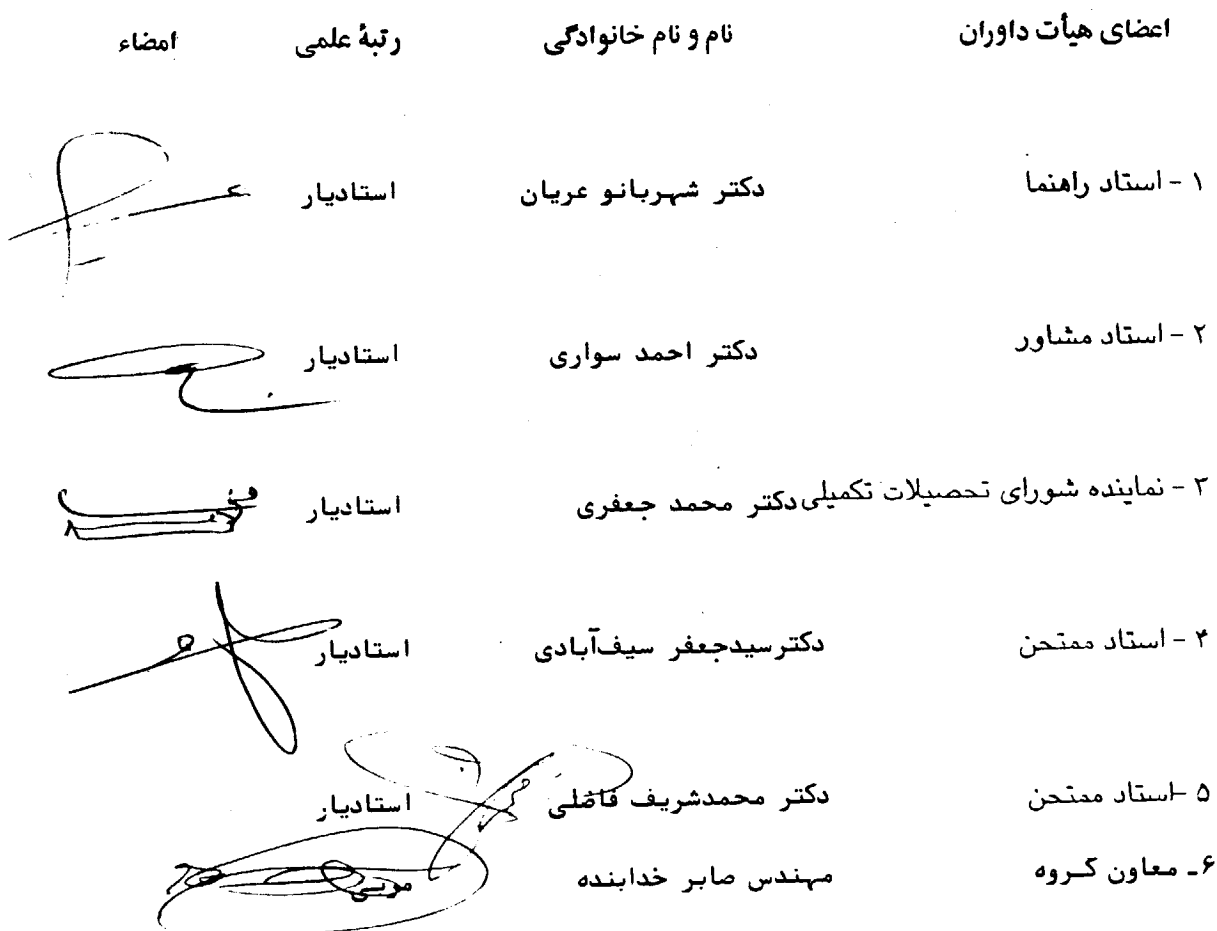 اعضای هیأت داوران نام و نام خانوادگی رتبهٔ علمی امضاء
۱ - استاد راهنما دکتر شهربانو عریان استادیار
۲ - استاد مشاور دکتر احمد سواری استادیار
۳ - نماینده شورای تحصیلات تکمیلی دکتر محمد جعفری استادیار
۴ - استاد ممتحن دکتر سیدجعفر سیف‌آبادی استادیار
۵ - استاد ممتحن دکتر محمدشریف فاضلی استادیار
۶ـ معاون گـروه مهندس صابر خدابنده مربی